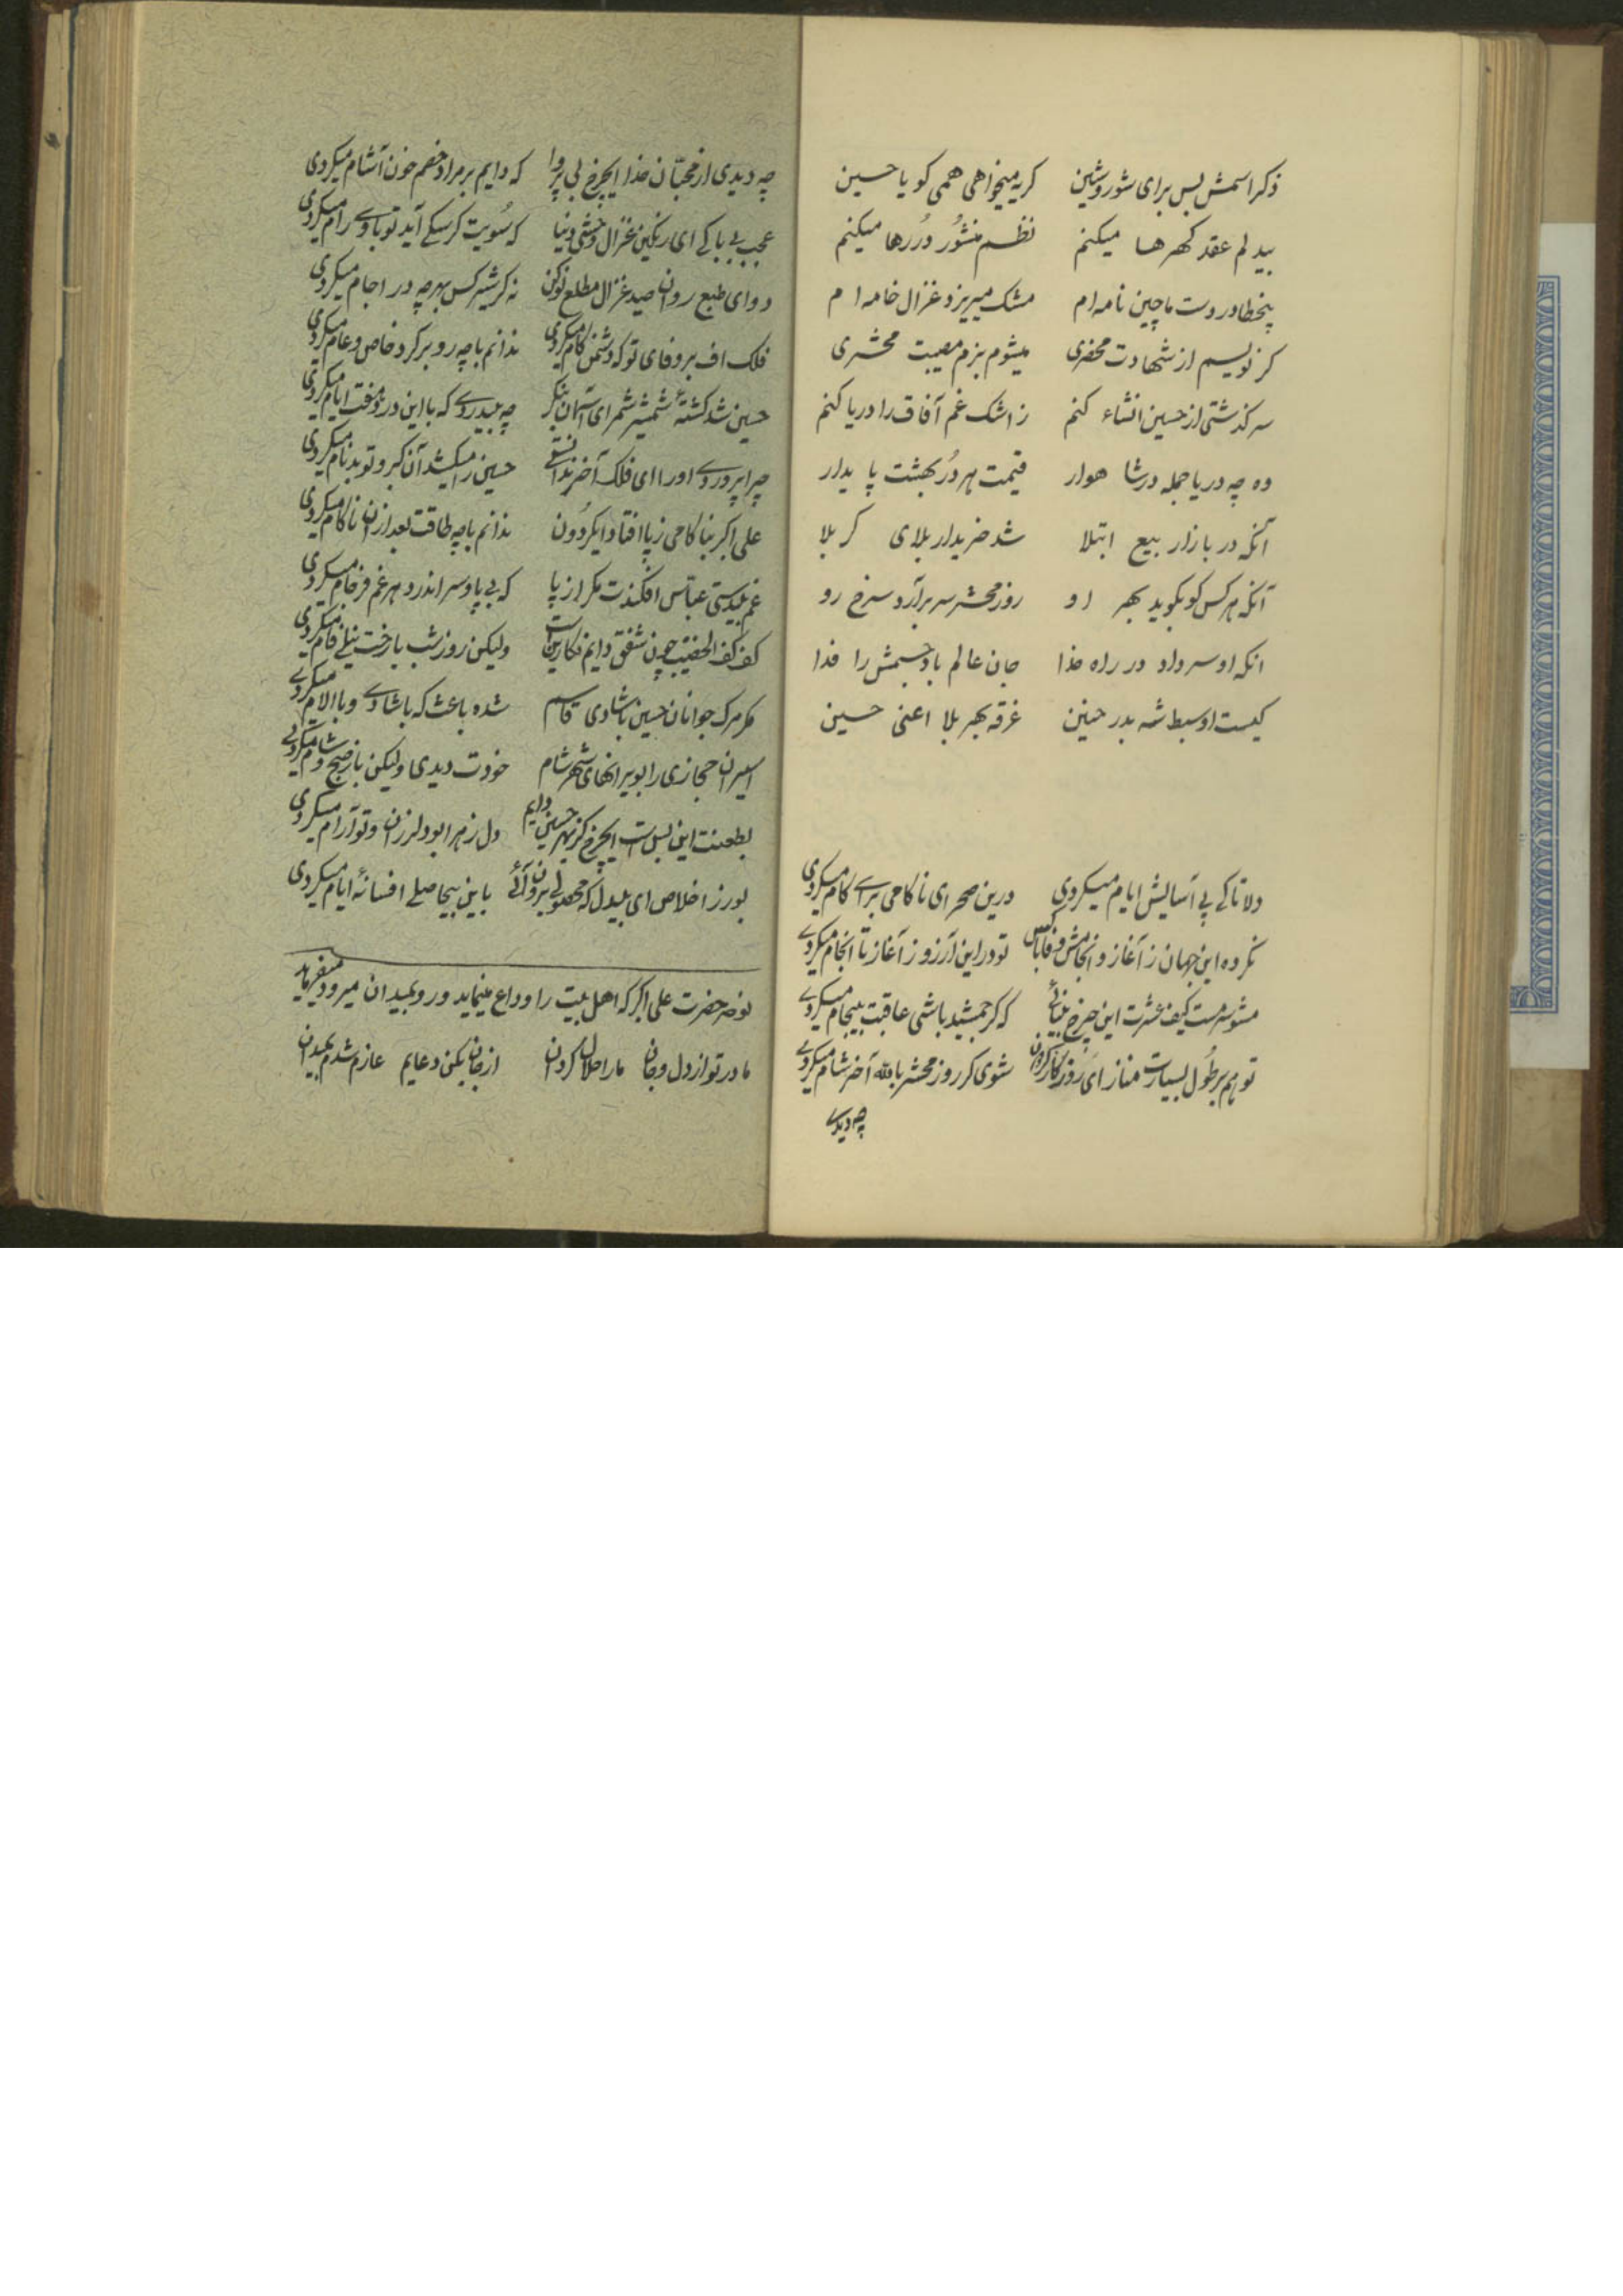 ذکر اسمش بس برای شور و شین گریه میخواهی همی گو یا حسین
بیدلم عقد گهرها میکنم نظم منثور دُررها میکنم
مشک میریزد غزال خامه ام
گر نویسم از شهادت محضری میشوم بزم مصیبت محشری
سرگذشتی از حسین انشاء کنم ز اشک غم آفاق را دریا کنم
وه چه دریا جمله در شاهوار قیمت هر دُر بهشت پایدار
آنکه در بازار بیع ابتلا شد خریدار بلای کربلا
آنکه هر کس کو بگوید بهر او روز محشر سر برآرد سرخ رو
انکه او سر داد در راه خدا جان عالم باد جسمش را فدا
کیست او سبط شه بدر حنین غرقه بهر بلا اعنی حسین
دلا تا کے پی آسایش ایام میکردی درین صحرای ناکامی برای کام میکردی
نکرده این جهان ز آغاز و انجامش وفا باکس تو در این آرزو ز آغاز تا انجام میکردی
مشو سرمست کیف عشرت این چرخ مینائی که گر جمشید باشی عاقبت بیجام میکردی
تو هم بر طُول بسیارت مناز ای روز شوی گر روز محشر بالله آخر شام میکردی
چه دیدی
چه دیدی از محبّان خدا ایچرخ بی پروا که دایم بر مراد خصم خون آشام میکردی
عجب بی باکے ای رنگین غزال وحشی دنیا که سُویت گر سگے آید تو با وے رام میکردی
د وای طبع روان صید غزال مطلع نو کن نه گر شیر کس بهر چه در اجام میکردی
فلک اف بر وفای تو که دشمن کام میکردی ندانم باچه رو بر گرد خاص و عام میکردی
حسین شد کشتهٔ شمشیر شمر ای آسمان بنگر چه بیدردے که با این درد هفت ایام میکردی
چرا پروردے او را ای فلک آخر ندانستے حسین را میکشد آن گبر و تو بدنام میکردی
علی اکبر بناکامی ز پا افتاد ایگردُون ندانم باچه طاقت بعد ازان ناکام میکردی
غم بیدستی عباس افکندت مگر از پا که بی پا و سر اندر وهر غم فرجام میکردی
کف کف الخضیب چون شفق دایم نگارین است ولیکن روز شب با رخت نیلے فام میکردی
مگر مرگ جوانان حسین با شادی قاسم شده باعث که با شادے و با الام میکردے
اسیران حجازی را بویرانهای شهر شام خودت دیدی ولیکن باز صبح و شام میکردے
بطعنت این بس است ایچرخ کز بهر حسین دایم دل زهرا بود لرزان و تو آرام میکردی
بورز اخلاص ای بیدل که محصولے برون آئے باین بیحاصلے افسانهٔ ایام میکردی
نوحه حضرت علی اکبر که اهل بیت را وداع مینماید و رو بمیدان میرود میفرماید
مادر تو از دل و جان ما را حلال گردان از جان بکن دعایم عازم شدم بمیدان